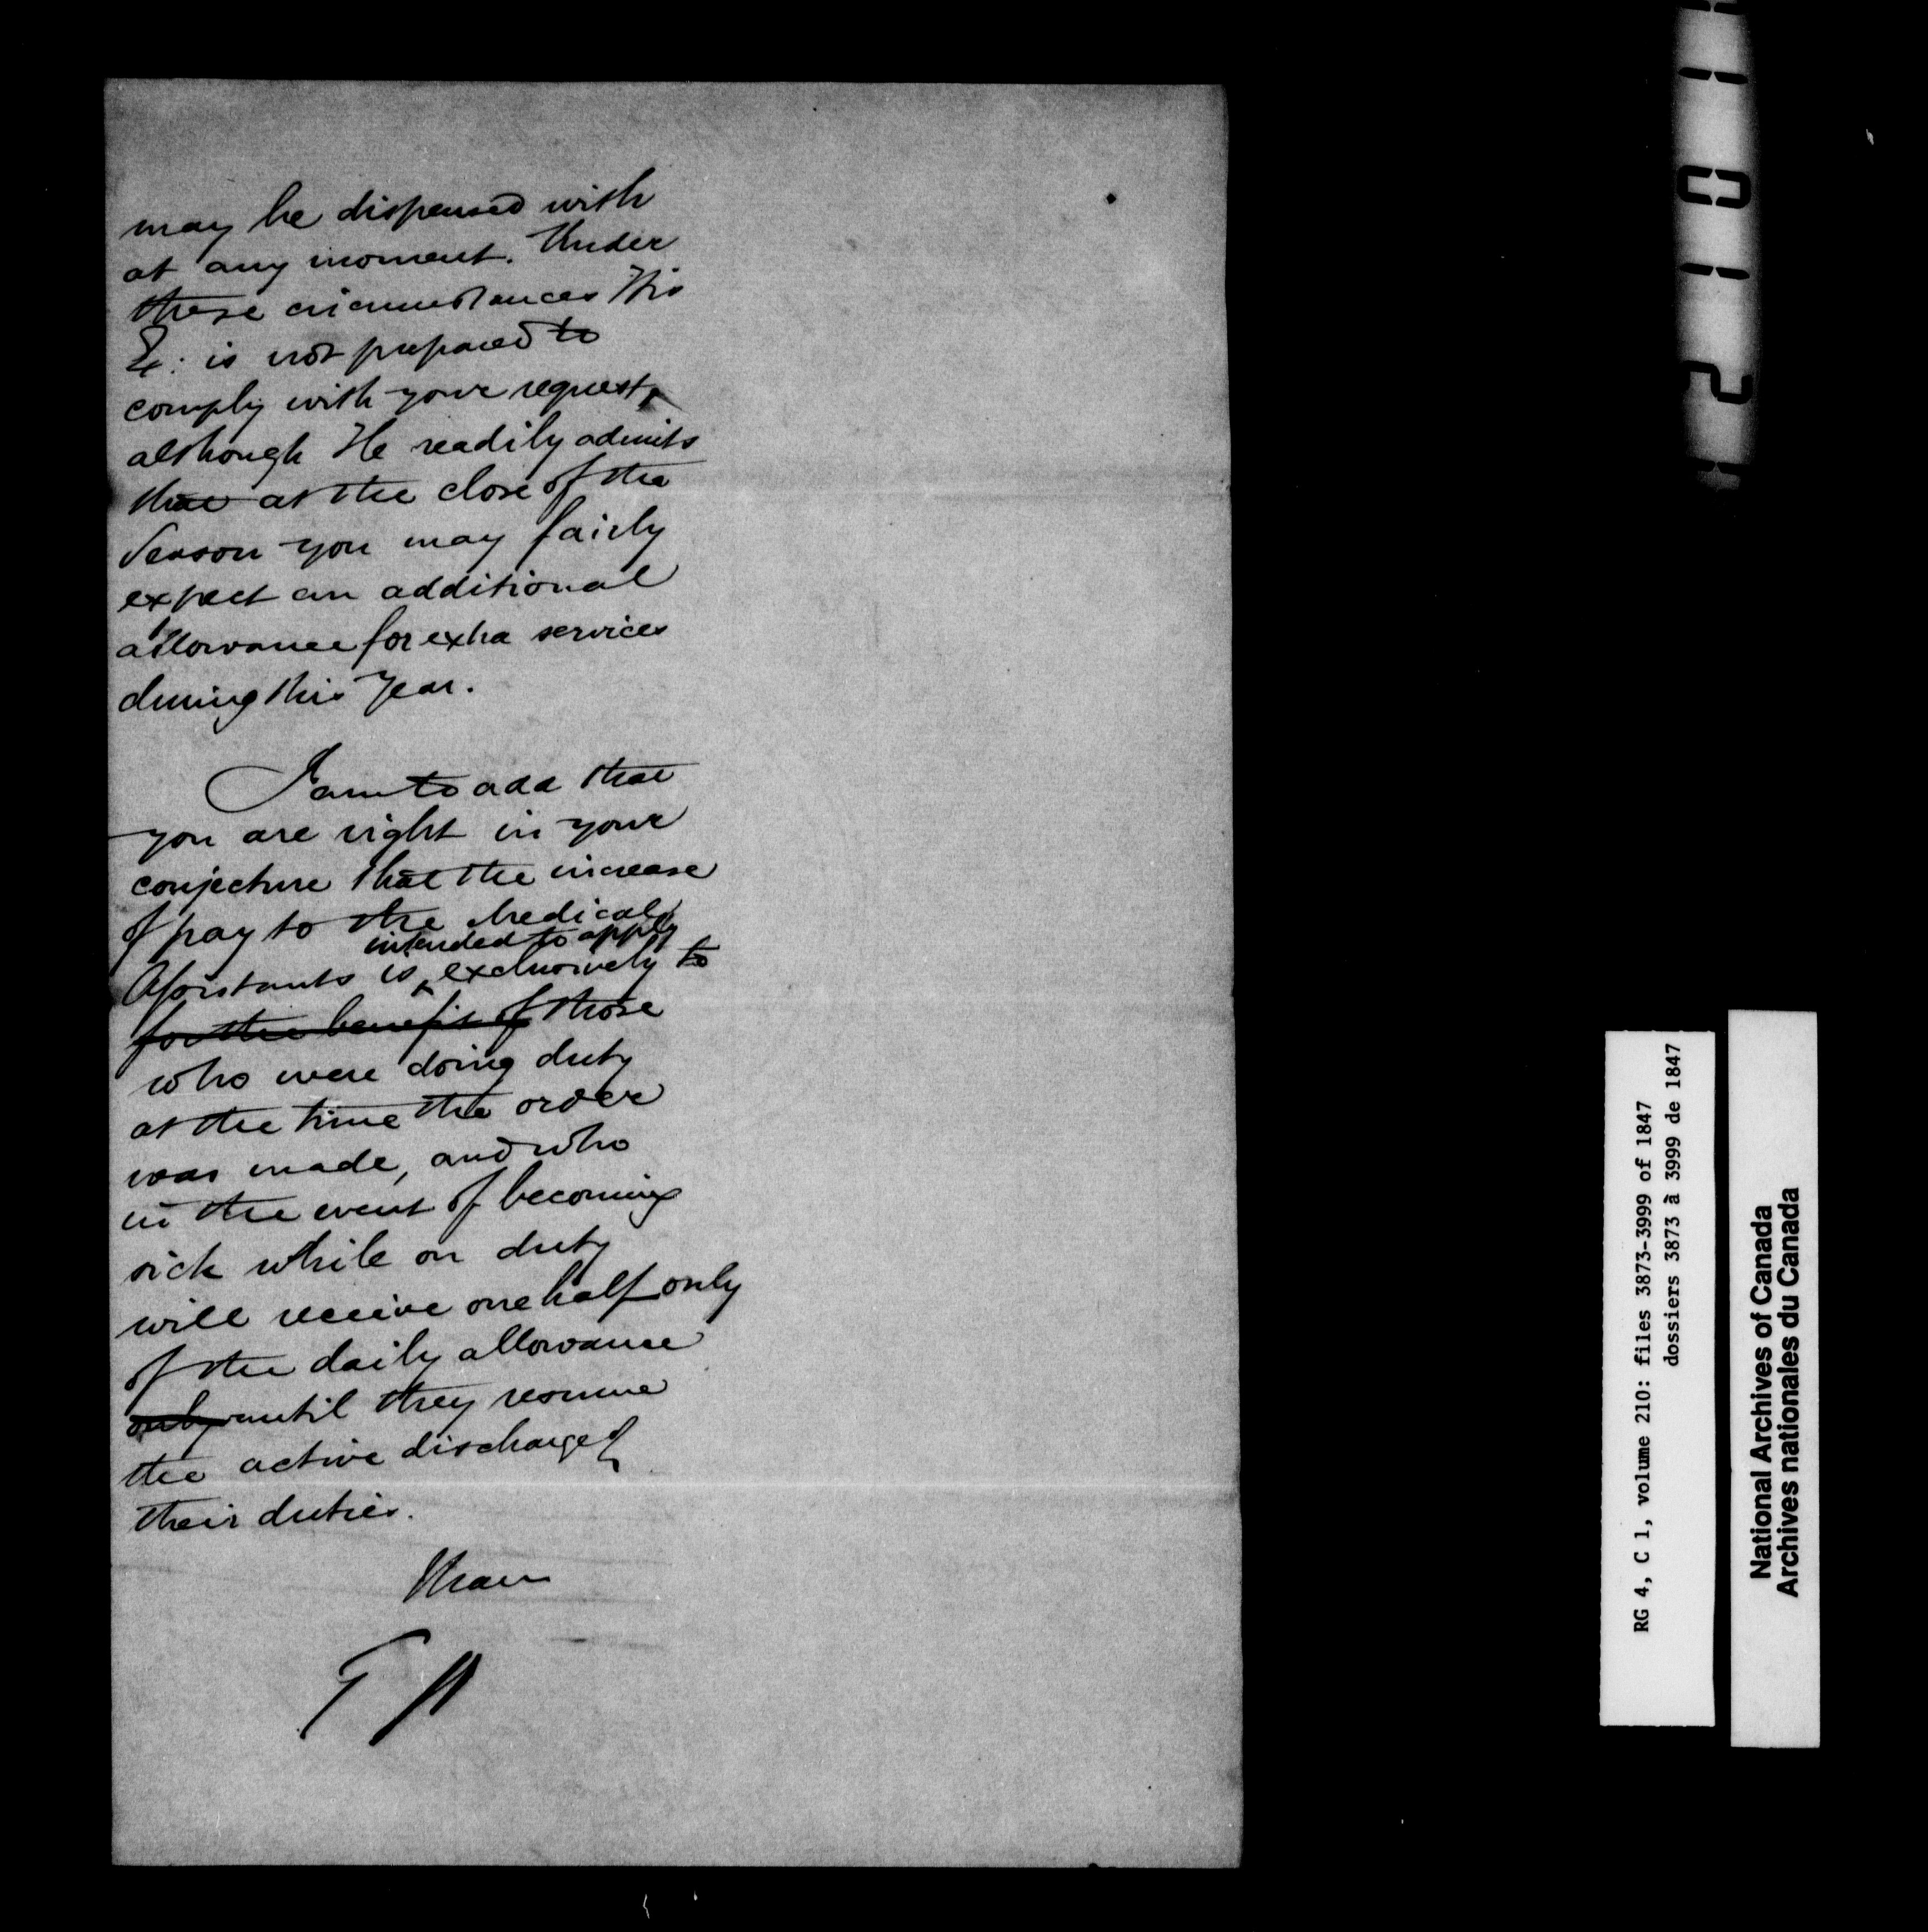 may be dispensed with
at any moment. Under
these circumstances His
Ex: is not prepared to
comply with your request,
although He readily admits
that at the close of the
Season you may fairly
expect an additional
allowance for extra services
during this Year.
I am to add that
you are right in your
conjecture that the increase
of pay to the Medical
intended to apply
Assistants is ‸ exclusively to
for the benefit of those
who were doing duty
at the time the order
was made, and who
in the event of becoming
sick while on duty
will receive one half only
of the daily allowance
only until they resume
the active discharge of
their duties.
I have
RG 4, C 1, volume 210: files 3873-3999 of 1847
dossiers 3873 à 3999 de 1847
National Archives of Canada
Archives nationales du Canada